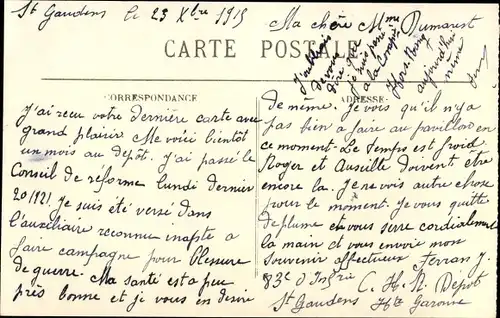 St Gaudens le 23 Xbre 1915
Ma chère Mme Dumarest
CARTE POSTALE
CORRESPONDANCE
J'ai reçu votre dernière carte avec
grand plaisir Me voici bientôt
un mois au dépôt. J'ai passé le
Conseil de réforme lundi dernier
20/921. Je suis été versé dans
l'auxiliaire reconnu inapte a
faire campagne pour Blessure
de guerre. Ma santé est a peu
près bonne et je vous en désire
ADRESSE
de même. Je vois qu'il n'y a
pas bien a faire au pavillon en
ce moment. Le Temps est froid
Roger et Auseille doivent être
encore la. Je ne vois autre chose
pour le moment. Je vous quitte
de plume et vous serre cordialement
la main et vous envoie mon
souvenir affectueux Ferran J.
83e d'Infrie C. H. R. Dépôt
St Gaudens Hte Garonne
J'oubliais
de vous
dire que
je suis passé
a la Compie
Hors Rang
aujourd'hui
même